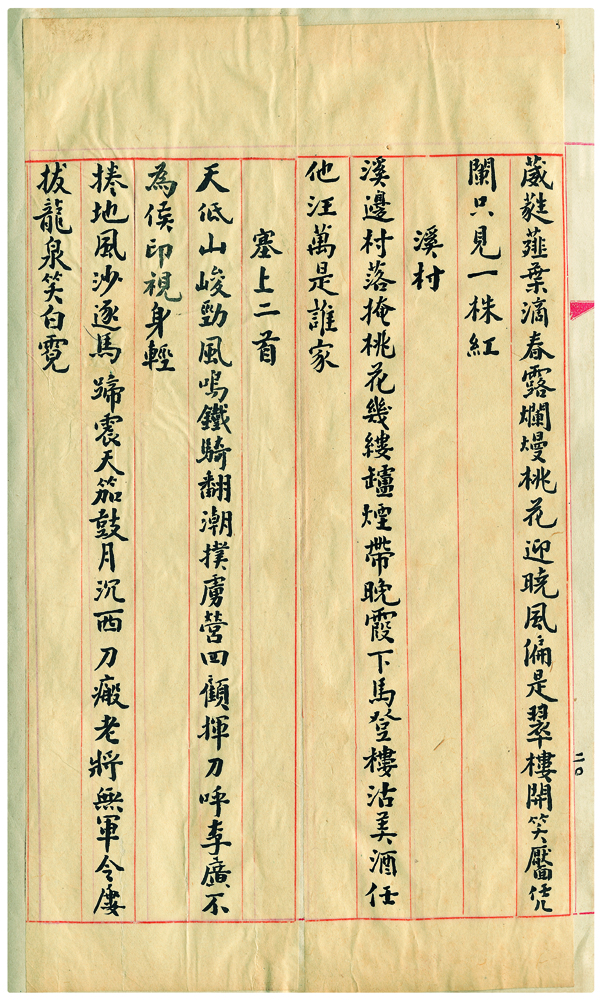 葳蕤薤葉滴春露爛熳桃花迎曉風偏是翠樓開笑靨凭
闌只見一株紅
溪村
溪邊村落掩桃花幾縷罏煙帶晚霞下馬登樓沽美酒任
他汪萬是誰家
塞上二首
天低山峻勁風鳴鐵騎翻潮撲虜營回顧揮刀呼李廣不
為侯印視身輕
捲地風沙逐馬蹄震天笳鼓月沉西刀瘢老將無軍令屢
拔龍泉笑白霓
二〇